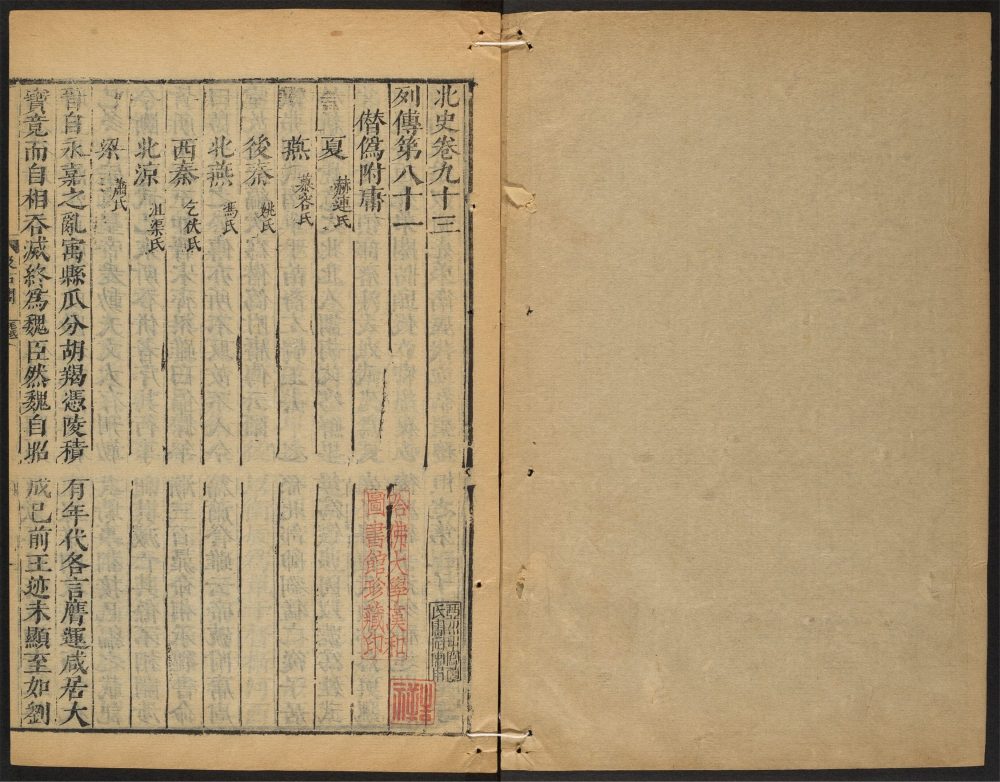 北史卷九十三
列傳第八十一
僭偽附庸
夏 赫連氏
燕 慕容氏
後秦 姚氏
北燕 馮氏
西秦 乞伏氏
北涼 沮渠氏
梁 蕭氏
晉自永嘉之亂寓縣瓜分胡羯憑陵積有年代各言膺運咸居大
寶竟而自相吞滅終爲魏臣然魏自昭成已前王迹未顯至如劉
哈佛大學漢和
圖書館珍藏印